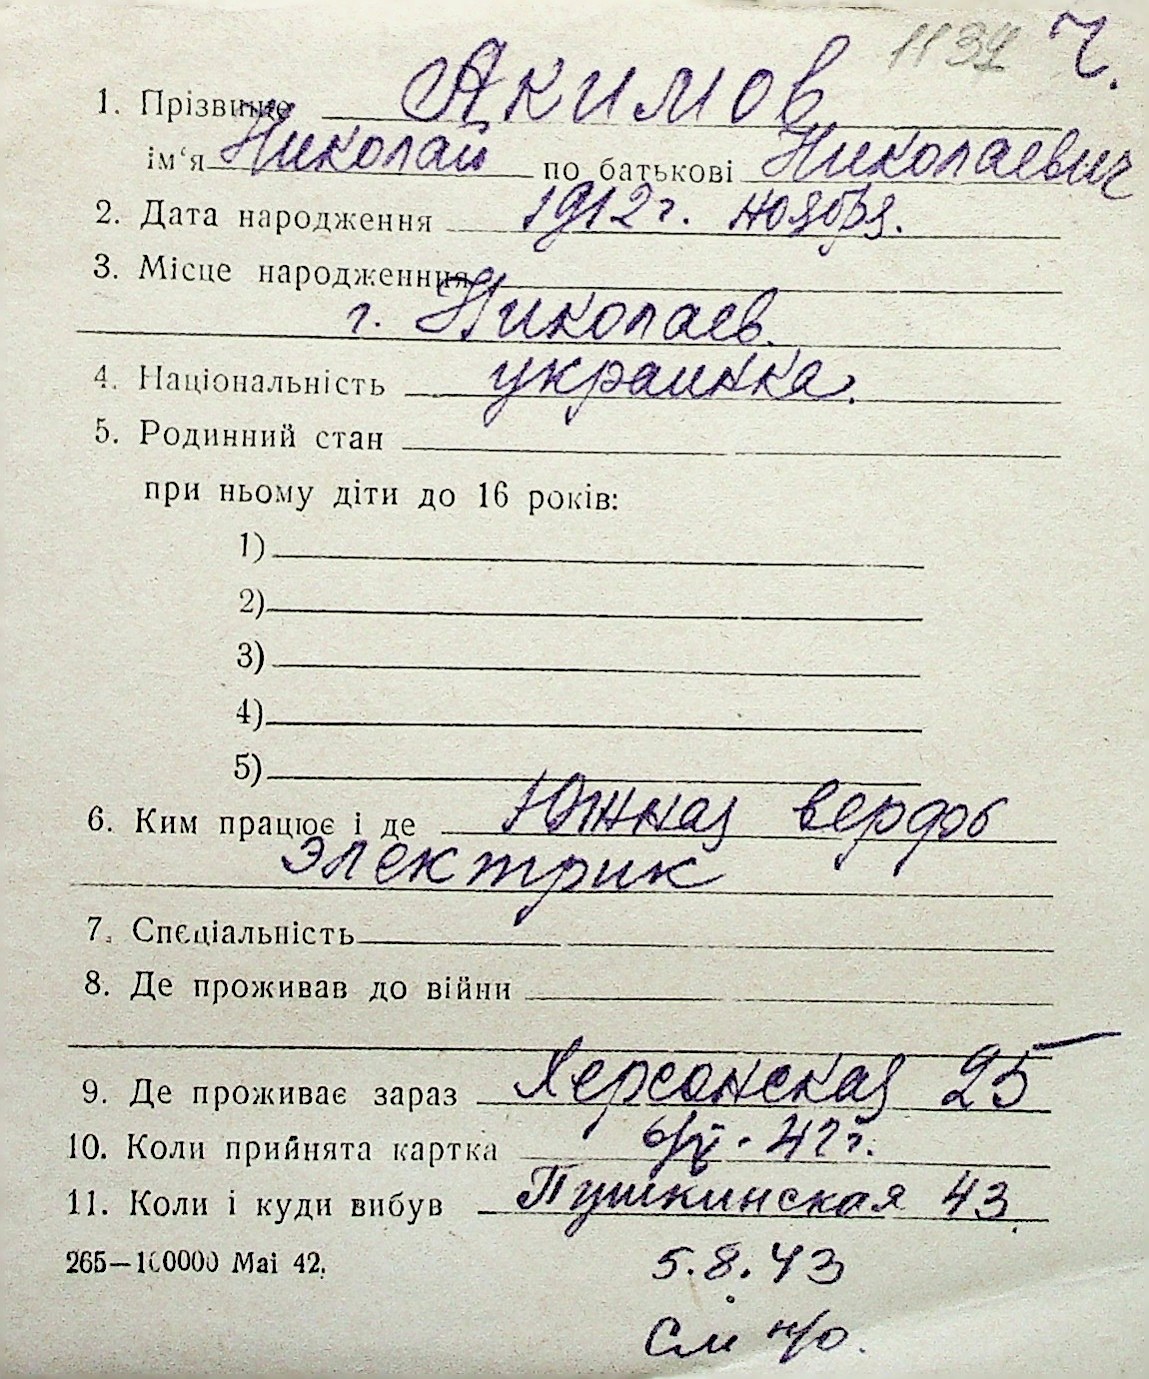 1134 Ч.
1. Прізвище Акимов
ім‘я Николай по батькові Николаевич
2. Дата народження 1912 г. ноября.
3. Місце народженння
г. Николаев.
4. Національність украинка.
5. Родинний стан
при ньому діти до 16 років:
1)
2)
3)
4)
5)
6. Ким працює і де Южная верфь
электрик
7. Спеціальність
8. Де проживав до війни
9. Де проживає зараз Херсонская 25
10. Коли прийнята картка 42 г.
11. Коли і куди вибув Пушкинская 43
265—100000 Маі 42.
5.8.43
См н/о.